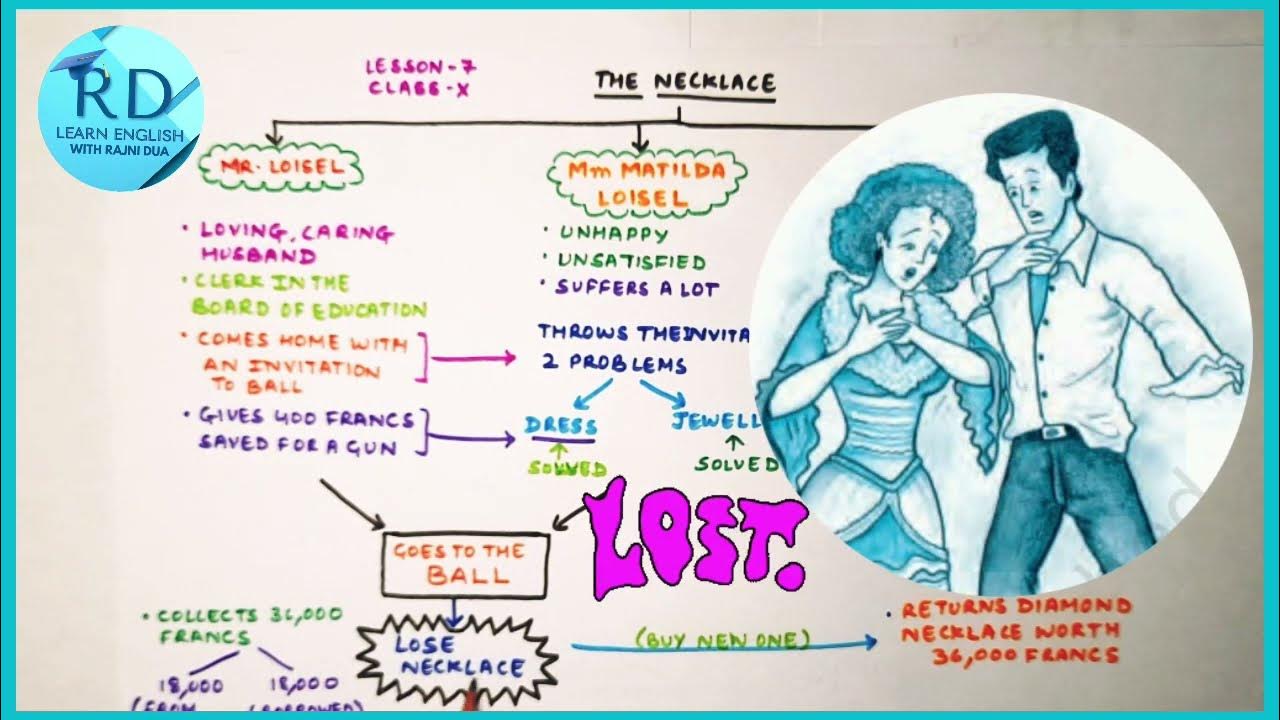 RD
LEARN ENGLISH
WITH RAJNI DUA
LESSON-7
CLASS-X
THE NECKLACE
MR. LOISEL
• LOVING, CARING
HUSBAND
• CLERK IN THE
BOARD OF EDUCATION
• COMES HOME WITH
AN INVITATION
TO BALL
• GIVES 400 FRANCS
SAVED FOR A GUN
Mm MATILDA
LOISEL
• UNHAPPY
• UNSATISFIED
• SUFFERS A LOT
THROWS THE INVITA
2 PROBLEMS
DRESS
JEWELL
SOLVED
SOLVED
LOST.
GOES TO THE
BALL
LOSE
NECKLACE
(BUY NEW ONE)
• RETURNS DIAMOND
NECKLACE WORTH
36,000 FRANCS
• COLLECTS 36,000
FRANCS
18,000
18,000
(FROM
(BORROWED)